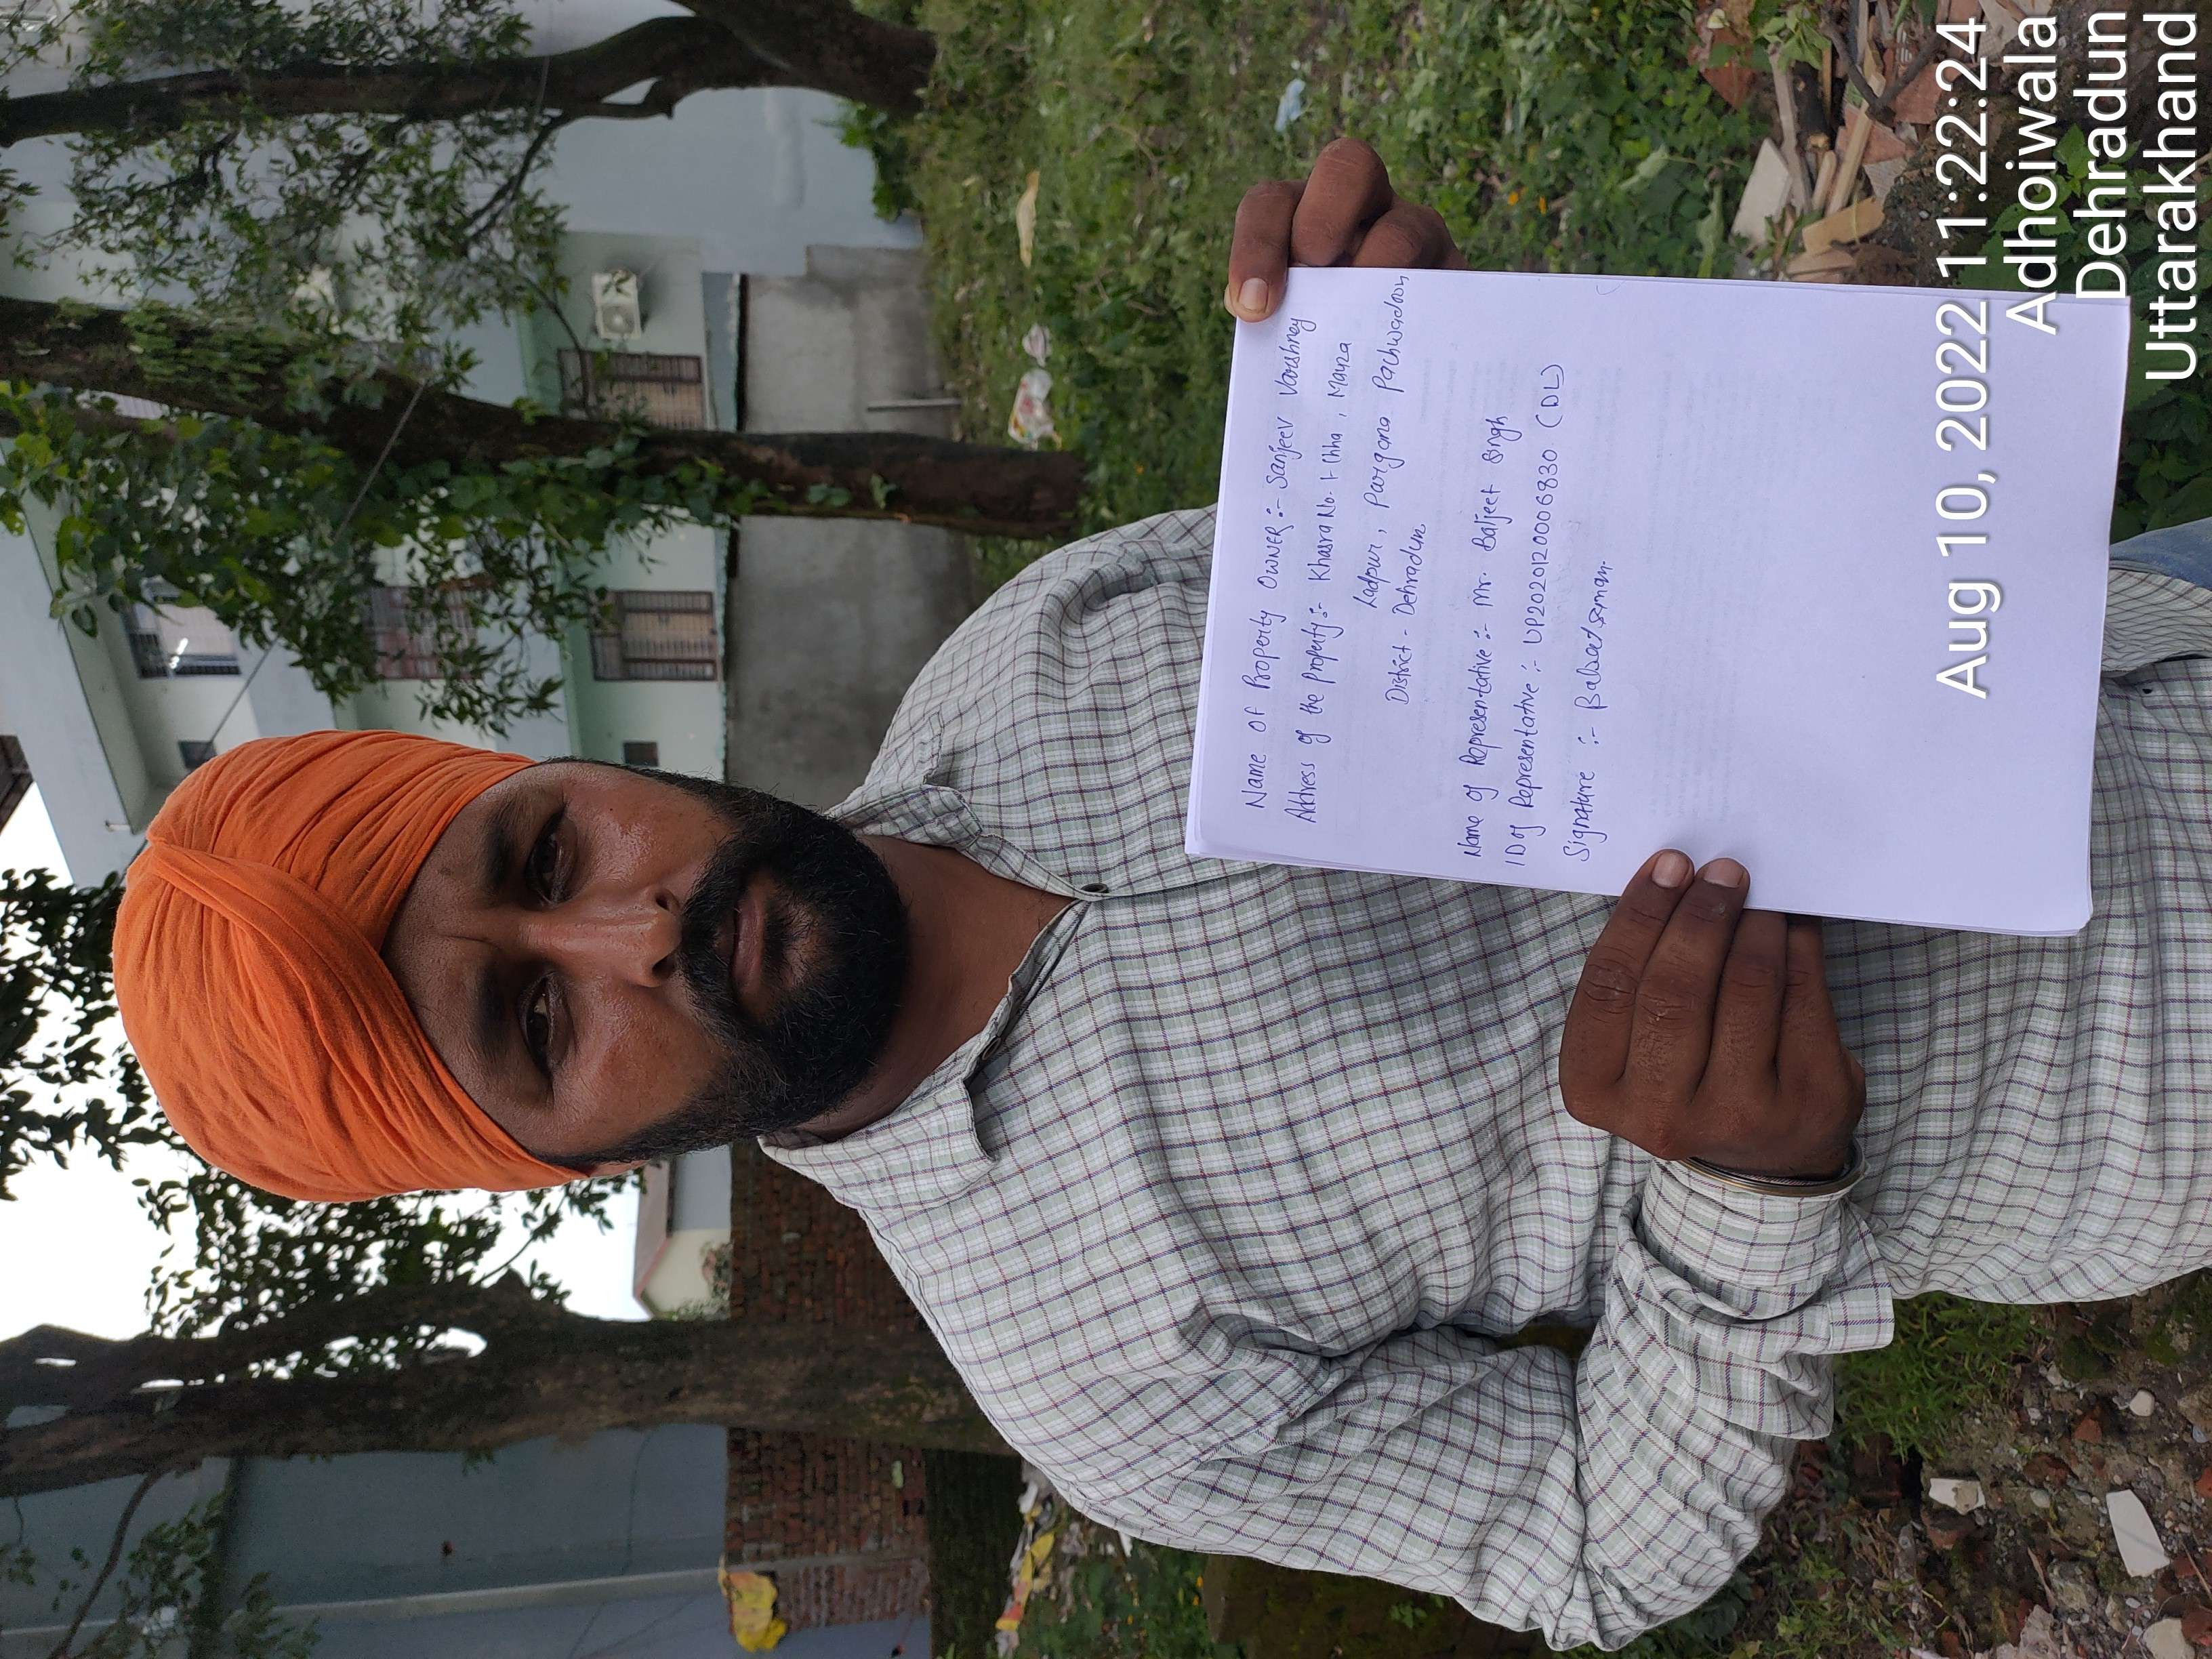 Name of Property Owner :- Sanjeev Varshney
Address of the Property :- Khasra No. 1- Chha, Mauza
Ladpur, Pargana Pachwadoon
District - Dehradun
Name of Representative :- Mr. Baljeet Singh
ID of Representative :- UP2020120006830 (DL)
Signature :-
Aug 10, 2022 11:22:24
Adhoiwala
Dehradun
Uttarakhand